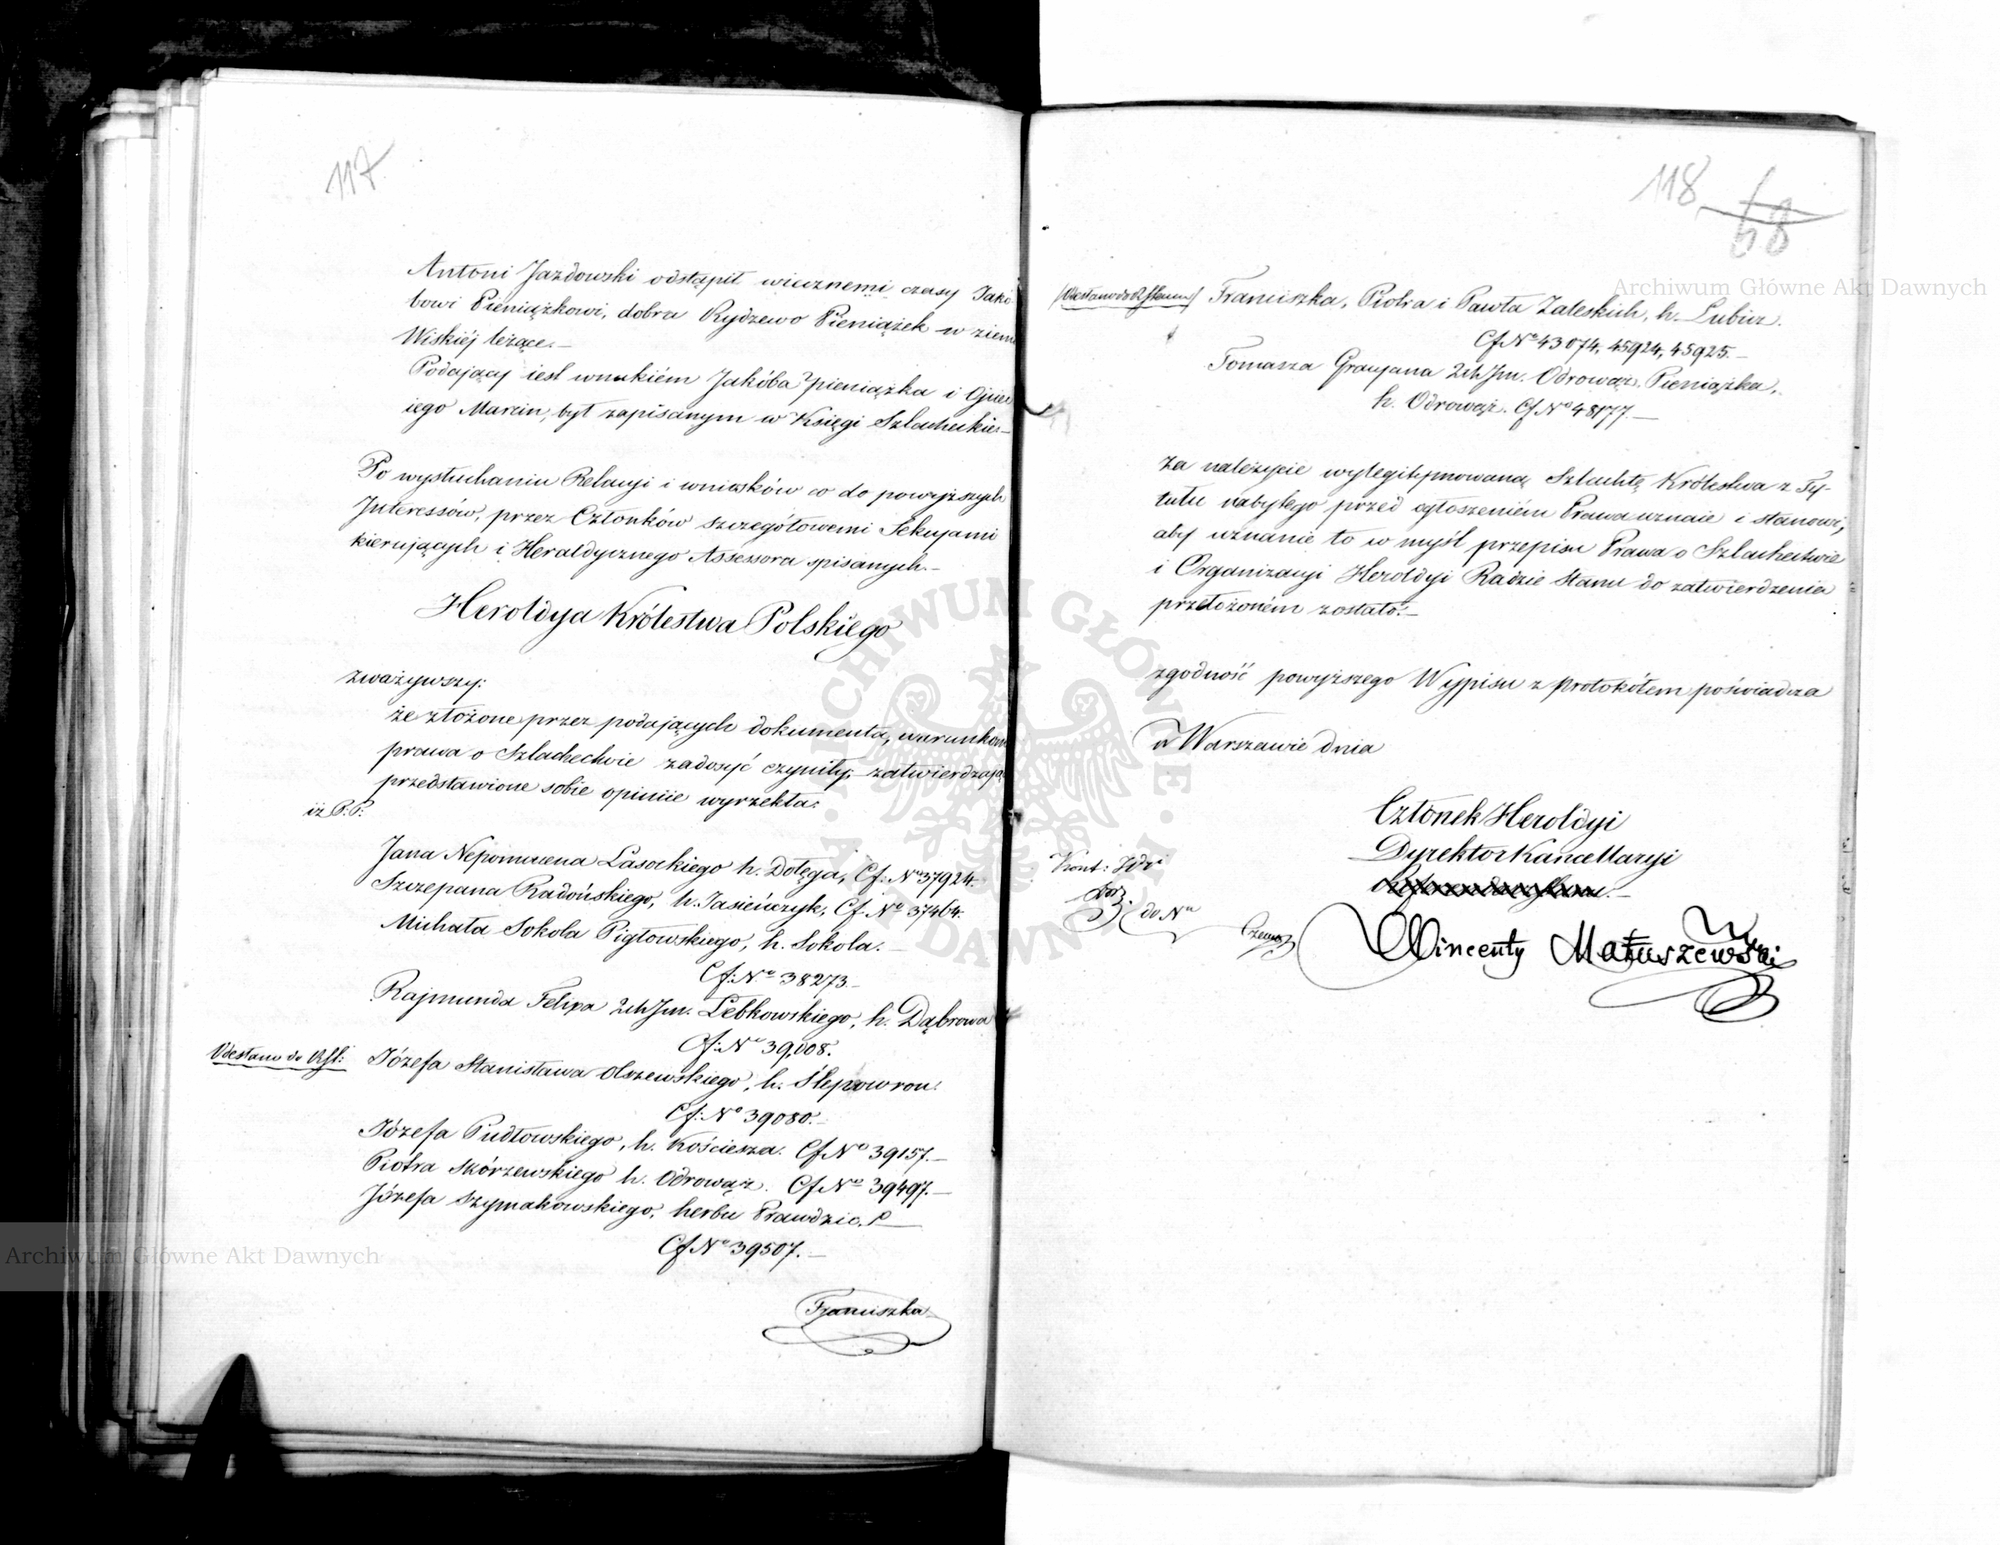 117
Antoni Jazdowski odstąpił wiecznemi czasy Jakó
bowi Pieniążkowi, dobra Rydzewo Pieniążek w ziemi
Wiskiéj leżące.—
Podający iest wnukiém Jakóba Pieniążka i Ojciec
iego Marcin, był zapisanym w Księgi Szlacheckie—
Po wysłuchaniu Relacyi i wniosków co do powyższych
Interessów, przez Członków szczegółowemi Sekcyami
kierujących i Heraldycznego Assessora spisanych.—
Heroldya Królestwa Polskiégo
zważywszy:
że złożone przez podających dokumenta, warunkom
prawa o Szlachectwie zadosyć czyniły, zatwierdzając
przedstawione sobie opiniie wyrzekła:
iż P.P:
Jana Nepomucena Lasockiego h. Dołęga, Cf: No 37924.
Szczepana Radońskiego, h. Jasieńczyk, Cf. No 37464.
Michała Sokola Pigłowskiego, h. Sokola.—
Cf: No 38273.—
Rajmunda Felixa 2ch Jm. Łebkowskiego, h. Dąbrowa
Cf: No 39,008.
Odesłano do
Józefa Stanisława Olszewskiego, h. Ślepowron.
Cf: No 39080.—
Józefa Pudłowskiego, h. Kościesza. Cf No 39157.—
Piotra Skórzewskiego h. Odrowąż. Cf No 39497.—
Józefa Szymakowskiego, herbu Prawdzic.
Cf No 39507.—
Franciszka
118
68
Franciszka, Piotra i Pawła Zaleskich, h. Lubicz.
Cf No 43074, 45924, 45925.—
Tomasza Gracyana 2ch Jm. Odrowąż Pieniążka,
h. Odrowąż. Cf No 48177.—
Za należycie wylegitymowaną Szlachtę Królestwa z Ty-
tułu nabytego przed ogłoszeniém Prawa uznaie i stanowi,
aby uznanie to w myśl przepisu Prawa o Szlachectwie
i Organizacyi Heroldyi Radzie Stanu do zatwierdzenia
przełożoném zostało.—
zgodność powyższego Wypisu z protokółem poświadcza
w Warszawie dnia
Członek Heroldyi
Dyrektor Kancellaryi
Wincenty Matuszewski
Kont:
do No
Archiwum Główne Akt Dawnych
Archiwum Główne Akt Dawnych
ARCHIWUM GŁÓWNE AKT DAWNYCH